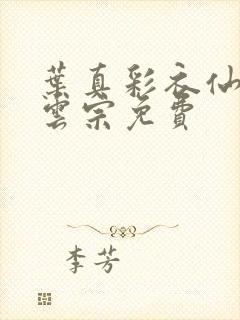 葉真彩衣仙
雲宗免費
李芳